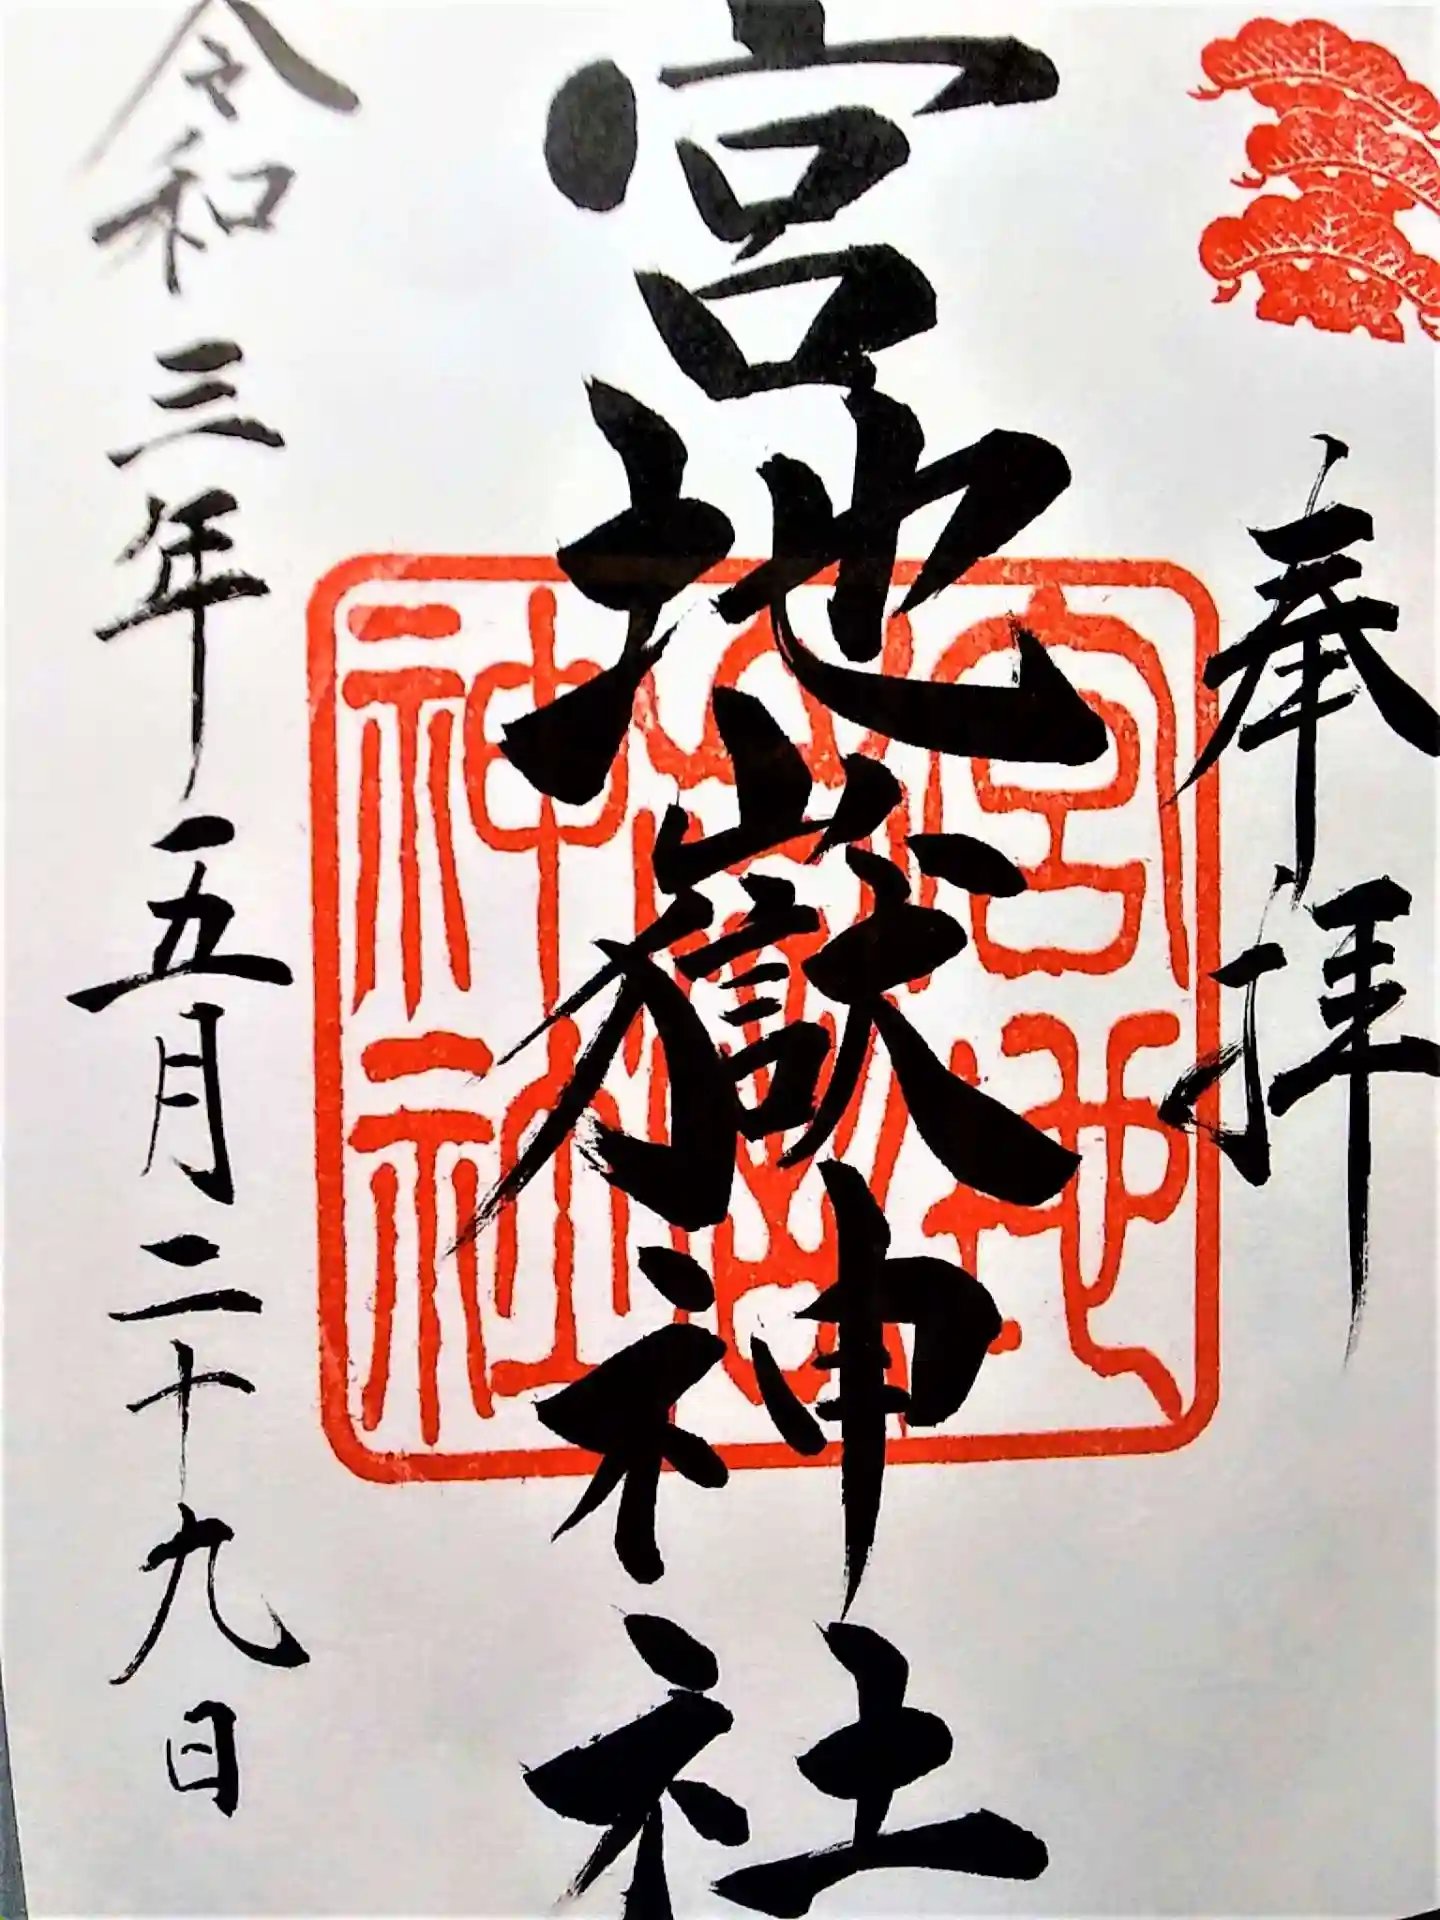 奉拝
宮地嶽神社
宮地
嶽
神社
令和三年五月二十九日